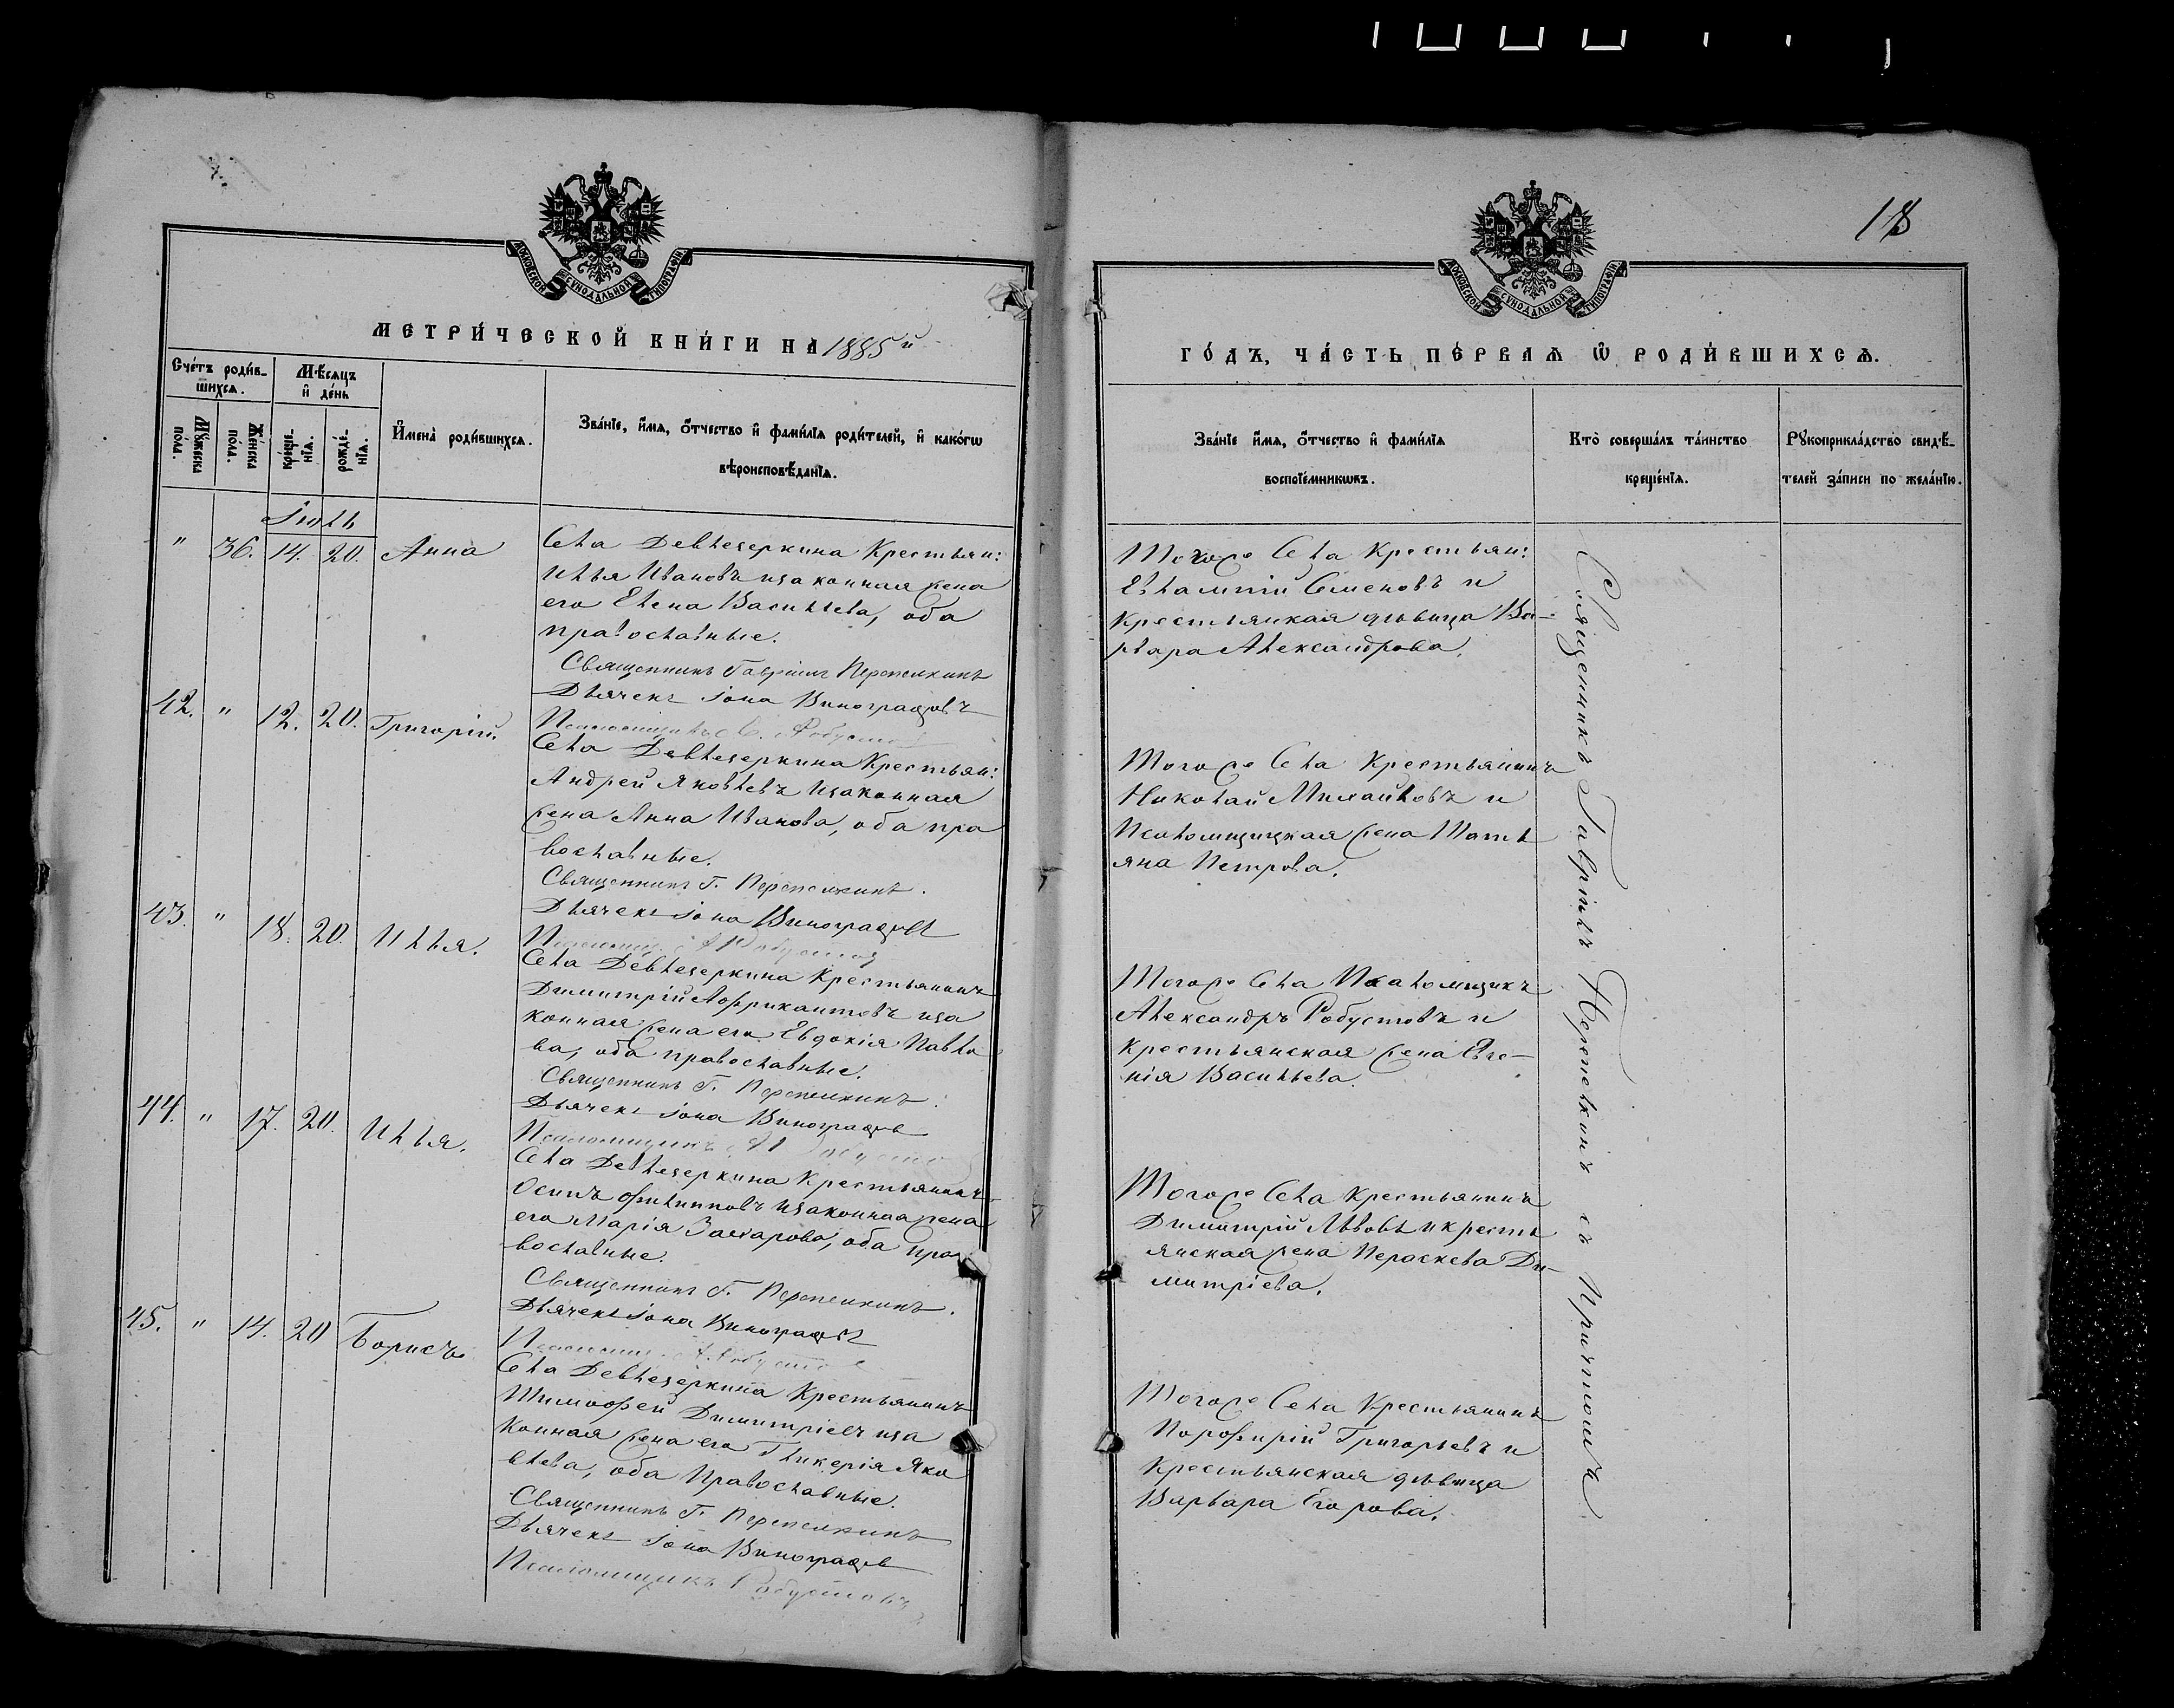 18
МОСКОВСКОЙ СѴНОДАЛЬНОЙ ТИПОГРАФІИ
МЕТРИ́ЧЕСКОЙ КНИ́ГИ НА 1885й
Сче́тъ роди́в-
шихсѧ.
Мѣ́сѧцъ
и҆ де́нь
Мꙋ́жеска
по́ла.
Же́нска
по́ла.
креще́-
нїѧ.
рожде́-
нїѧ.
И҆мена̀ роди́вшихсѧ.
Зва́нїе, и҆́мѧ, ѻ҆́тчество и҆ фами́лїѧ роди́телей, и҆ како́гѡ
вѣроисповѣ́данїѧ.
Іюль
" 36. 14. 20. Анна
Села Девлезеркина Крестьян:
Илья Ивановъ изаконная жена
его Елена Васильева, оба
православные.
Священникъ Гавріилъ Перепелкинъ
Дьячекъ Іона Виноградовъ
Псаломщикъ А. Робустовъ
42. " 12. 20. Григорій.
Села Девлезеркина Крестьян:
Андрей Яковлевъ изаконная
жена Анна Иванова, оба пра
вославные.
Священникъ Г. Перепелкинъ.
Дьячекъ Іона Виноградовъ
Псаломщ. А. Робустовъ
43. " 18. 20. Илья.
Села Девлезеркина Крестьянинъ
Димитрій Аофрикантовъ иза
конная жена его Евдокія Павло
ва, оба православные.
Священникъ Г. Перепелкинъ.
Дьячекъ Іона Виноградовъ
Псаломщикъ А. Робустовъ
44. " 17. 20. Илья.
Села Девлезеркина Крестьянинъ
Осипъ Филипповъ изаконная жена
его Марія Захарова, оба пра
вославные.
Священникъ Г. Перепелкинъ.
Дьячекъ Іона Виноградовъ
Псаломщ. А. Робустовъ
45. " 14. 20 Борисъ.
Села Девлезеркина Крестьянинъ
Тимофей Димитріевъ иза
конная жена его Гликерія Яко
влева, оба Православные.
Священникъ Г. Перепелкинъ
Дьячекъ Іона Виноградовъ
Псаломщикъ Робустовъ
МОСКОВСКОЙ СѴНОДАЛЬНОЙ ТИПОГРАФІИ
ГО́ДЪ, ЧА́СТЬ ПЕ́РВАѦ Ѡ҆ РОДИ́ВШИХСѦ.
Зва́нїе и҆́мѧ, ѻ҆́тчество и҆ фами́лїѧ
воспрїе́мникѡвъ.
Кто̀ соверша́лъ та́инство
креще́нїѧ.
Рꙋкоприкла́дство свидѣ́-
телей за́писи по жела́нїю.
Тогоже Села Крестьян:
Евлампій Семеновъ и
крестьянкая дѣвица Ва-
рвара Александрова.
Тогоже Села Крестьянинъ
Николай Михайловъ и
Псаломщицкая жена Тать
яна Петрова.
Тогоже Села Псаломщикъ
Александръ Робустовъ и
крестьянская жена Евге-
нія Васильева.
Тогоже Села крестьянинъ
Димитрій Львовъ и кресть
янская жена Пераскева Ди-
митріева.
Тогоже Села Крестьянинъ
Порфирій Григорьевъ и
Крестьянская дѣвица
Варвара Егорова.
Священникъ Гавріилъ Перепелкинъ съ Причтомъ